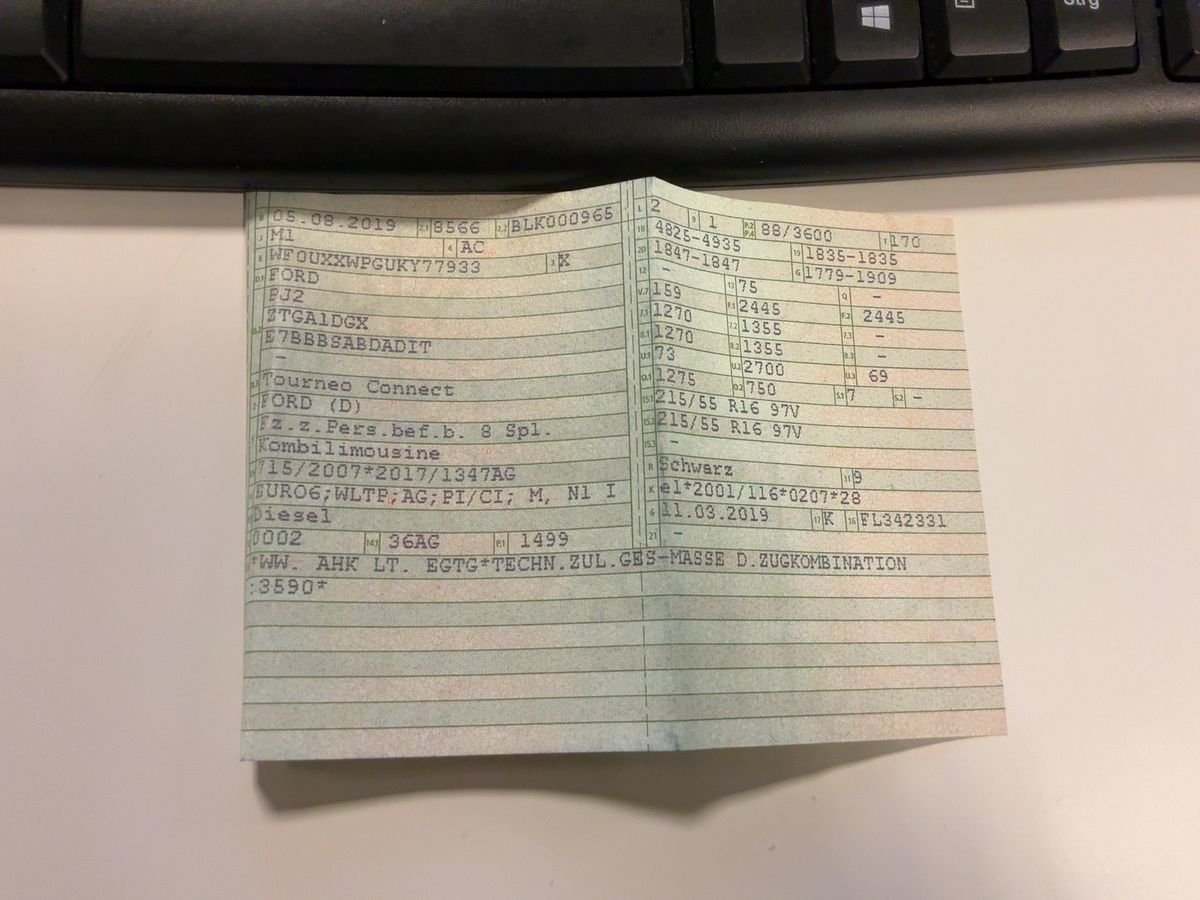 Strg
B 05.08.2019 2.1 8566 2.2 BLK000965
J M1 4 AC
E WF0UXXWPGUKY77933 3 X
D.1 FORD
PJ2
D.2 ZTGA1DGX
E7BBBSABDADIT
–
D.3 Tourneo Connect
2 FORD (D)
5 Fz.z.Pers.bef.b. 8 Spl.
Kombilimousine
715/2007*2017/1347AG
EURO6;WLTP;AG;PI/CI; M, N1 I
Diesel
0002 14.1 36AG P.1 1499
L 2 9 1 P.2 P.4 88/3600 T 170
18 4825-4935 19 1835-1835
20 1847-1847 G 1779-1909
12 – 13 75 Q –
V.7 159 F.1 2445 F.2 2445
7.1 1270 7.2 1355 7.3 –
8.1 1270 8.2 1355 8.3 –
U.1 73 U.2 2700 U.3 69
O.1 1275 O.2 750 S.1 7 S.2 –
15.1 215/55 R16 97V
15.2 215/55 R16 97V
15.3 –
R Schwarz 11 9
K e1*2001/116*0207*28
6 11.03.2019 17 K 16 FL342331
21 –
*WW. AHK LT. EGTG*TECHN.ZUL.GES-MASSE D.ZUGKOMBINATION
:3590*